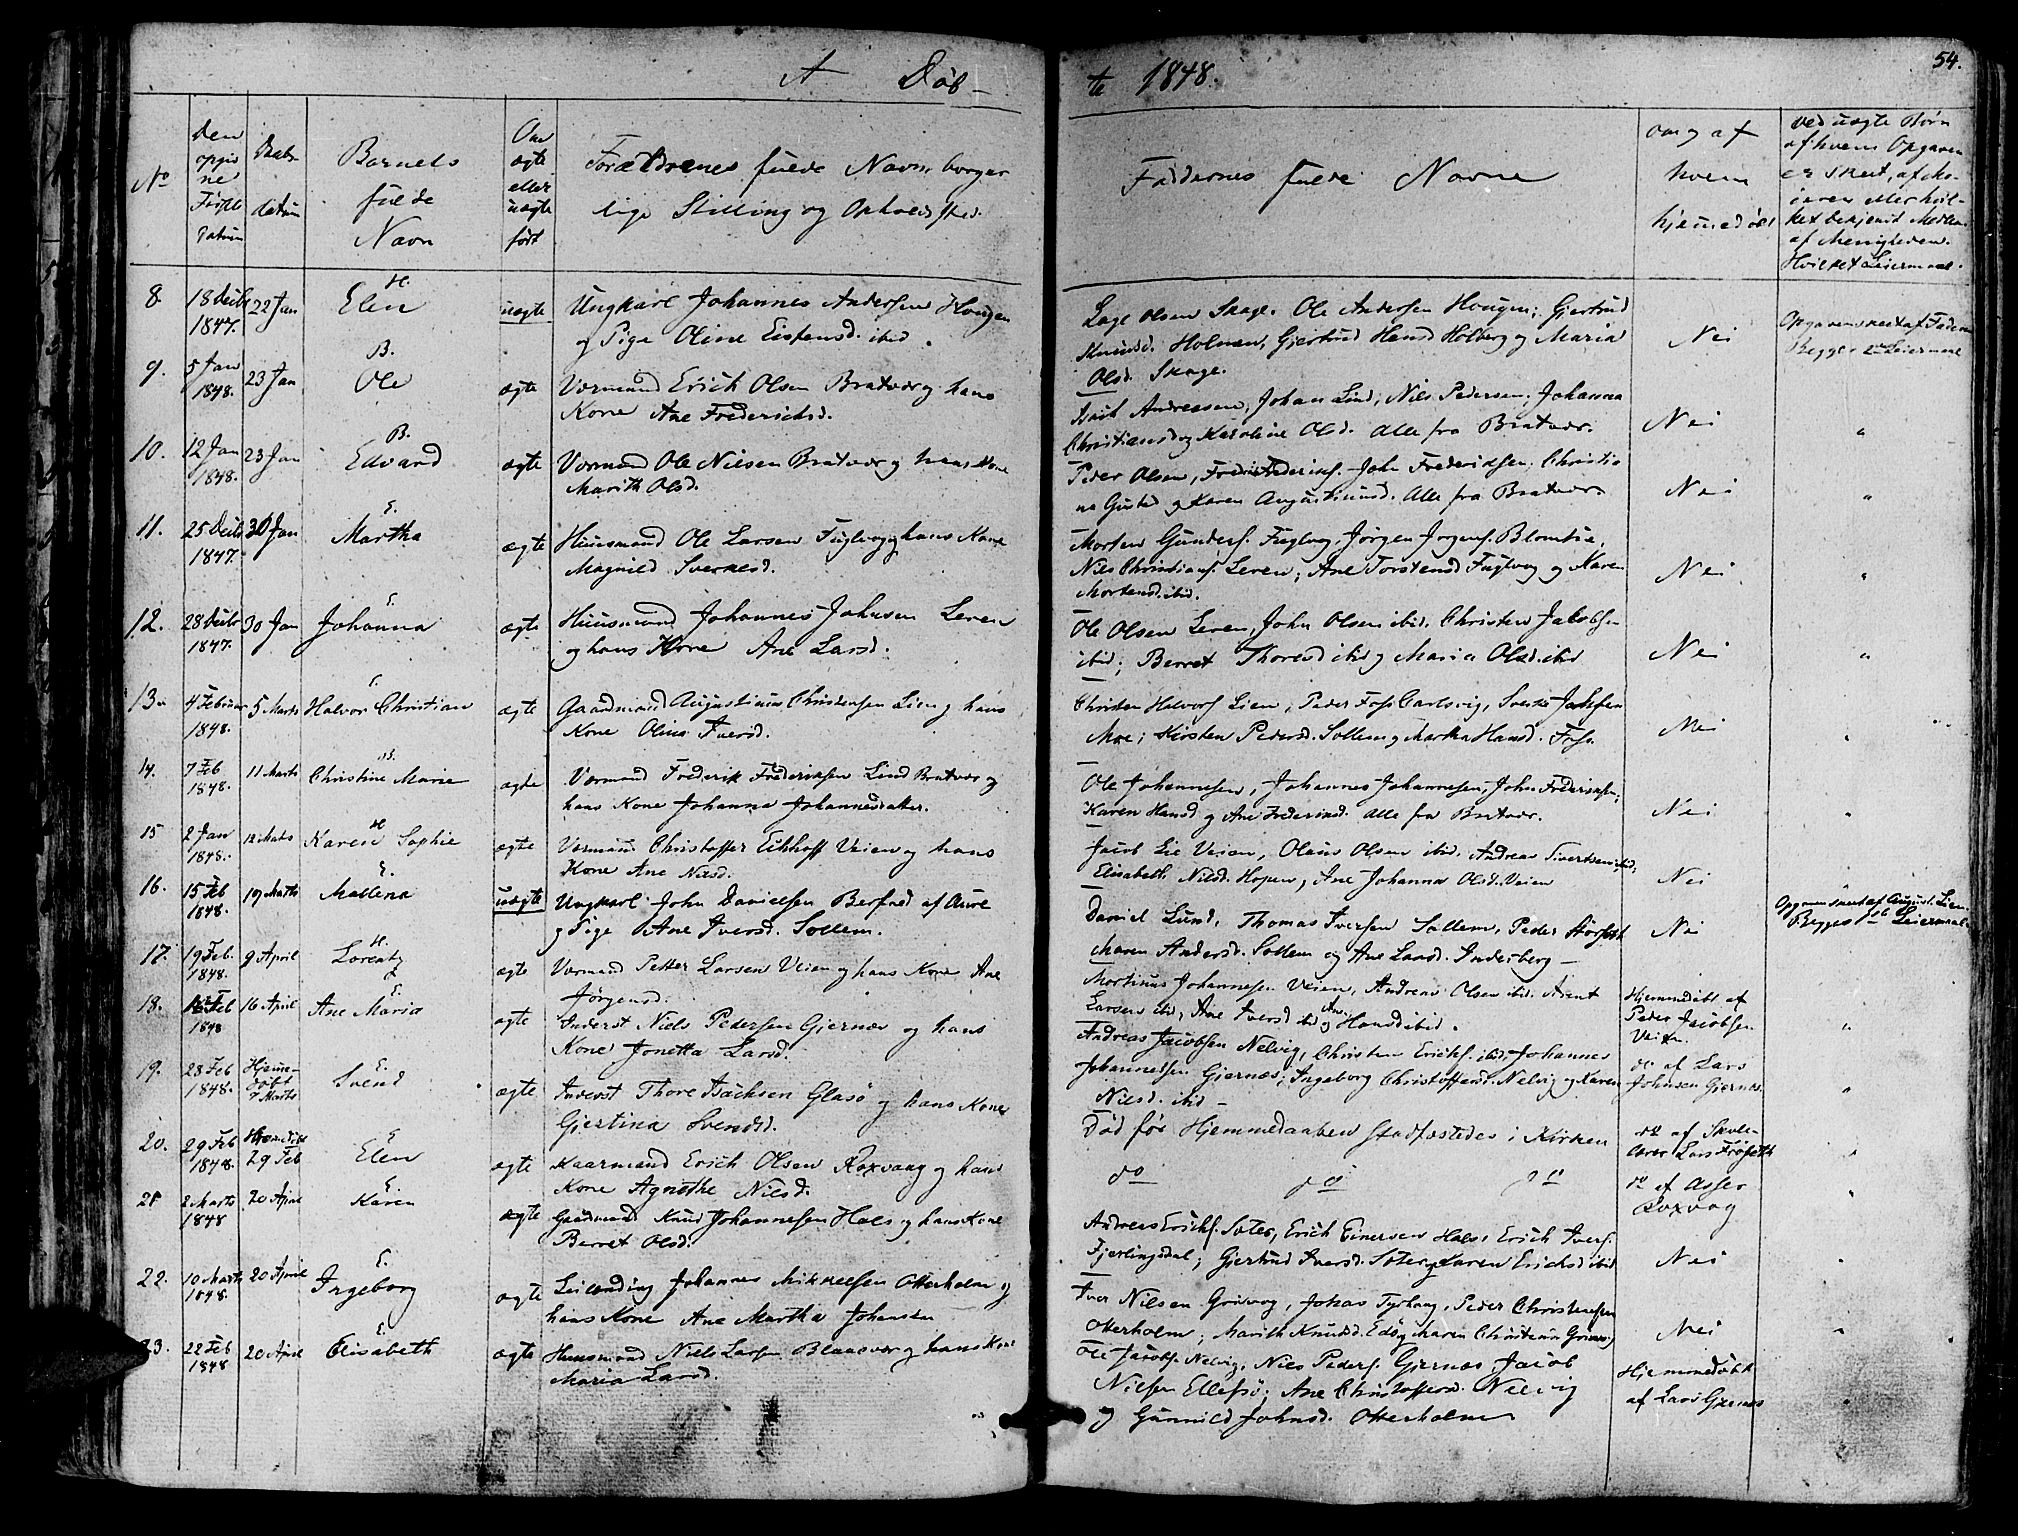 A Døb-
te 1848.
54.
No
Den opgivne Fødsels Datum
Daabs datum
Barnets fulde Navn
Om ægte eller uægte født
Forældrenes fulde Navn, borgerlige Stilling og Opholdssted.
Faddernes fulde Navne
om og af hvem hjemmedøbt
Ved uægte Børn af hvem Opgaven er skeet, af Moderen eller hvilket bekjendt Medlem af Menigheden. Hvilket Leiermaal.
8. 18 Decbr 1847. 22 Jan H. Elen uægte Ungkarl Johannes Andersen Hougen
og Pige Oline Eistensd. ibid.
Lage Olsen Skage. Ole Andersen Hougen; Gjertrud
Knudsd. Holmen, Gjertrud Hansd Holberg og Maria
Olsd. Skage.
Nei
Opgaven skeet af Faderen
Begges 2det Leiermaal
9. 5 Jan 1848. 23 Jan B. Ole ægte Vormand Erich Olsen Bratvær og hans
Kone Ane Frederichsd.
Isach Andreasen, Johan Lind; Nils Pedersen; Johanna
Christiansd og Karoline Olsd. Alle fra Bratvær.
Nei "
10. 12 Jan 1848. 23 Jan B. Edvard ægte Vormand Ole Nielsen Bratvær og hans Kone
Marith Olsd.
Peder Olsen, Fredrik Frederiks. John Frederiksen; Christia
na Gustad og Karen Augustinusd. Alle fra Bratvær.
Nei "
11. 25 Decbr 1847. 30 Jan E. Martha ægte Huusmand Ole Larsen Fuglvog og hans Kone
Magnild Sverkesd.
Morten Gunders. Fuglvog, Jørgen Jørgens. Blomsøe,
Nils Christians. Leren; Ane Torstensd Fuglvog og Karen
Mortensd. ibid.
Nei "
12. 28 Decbr 1847. 30 Jan E. Johanna ægte Huusmand Johannes Johnsen Leren
og hans Kone Ane Larsd.
Ole Olsen Leren, John Olsen ibid. Christen Jakobsen
ibid; Berret Thoresd ibid og Maria Olsd. ibid
Nei "
13. 4 Februar 1848. 5 Marts E. Halvor Christian ægte Gaardmand Augustinus Christensen Lien og hans
Kone Olina Iversd.
Christen Halvors. Lien, Peder Foss Carlsvig, Sverke
Moe; Kirsten Pedersd. Sollem og Martha Hansd. Foss.
Nei "
14. 7 Feb 1848. 11 Marts B. Christine Marie ægte Vormand Frederik Frederiksen Lind Bratvær og
hans Kone Johanna Johannesdatter.
Ole Johannesen, Johannes Johannesen, John Frederiksen;
Karen Hansd og Ane Frederiksd. Alle fra Bratvær.
Nei "
15 2 Jan 1848. 12 Marts H. Karen Sophie ægte Vormand Christoffer Eichhoff Veien og hans
Kone Ane Nilsd.
Jacob Lie Veien, Olaus Olsen ibid. Andreas Sivertsen ibid;
Elisabeth Nilsd. Hopen, Ane Johanna Olsd. Veien
Nei
16. 15 Feb 1848. 19 Marts E. Mallena uægte Ungkarl John Danielsen Berfred af Aure
og Pige Ane Iversd. Sollem.
Daniel Lund, Thomas Iversen Sollem, Peder
Maren Andersd. Sollem og Ane Larsd. Inderberg –
Nei
Opgaven skeet af August. Lien
Begges 1ste Leiermaal
17. 19 Feb. 1848. 9 April H. Lorentz ægte Vormand Petter Larsen Veien og hans Kone Ane
Jørgensd.
Mortinus Johannesen Veien, Andreas Olsen ibid. Arent
Larsen ibid, Ane Iversd ibid og Ane Hansd ibid.
Hjemmedøbt af
Peder Jacobsen
Veien. "
18. Feb 1848 16 April E. Ane Maria ægte Inderst Niels Pedersen Gjernes og hans
Kone Jonetta Larsd.
Andreas Jacobsen Nelvig, Christen Erichs. ibid, Johannes
Johannessen Gjernæs; Ingeborg Christoffersd. Nelvig og Karen
Nilsd. ibid –
do af Lars
Johnsen Gjernæs "
19. 28 Feb 1848. Hjemmedøbt 7 Marts E. Svend ægte Inderst Thore Isachsen Glasø og hans Kone
Gjertina Svendsd.
Død før Hjemmedaaben stadfæstedes i Kirken
do af Skole-
lærer Lars Frøseth "
20. 29 Feb 1848. Hjemmedøbt 29 Feb E Elen ægte Kaarmand Erich Olsen Roxvaag og hans
Kone Agnethe Nilsd.
do do do
do af Asser
Roxvog "
21 2 Marts 1848 20 April E Karen ægte Gaardmand Knud Johannesen Hals og hans Kone
Berret Olsd.
Andreas Erichs. Soter, Erich Einersen Hals, Erich Ivers.
Fjerlingsdal; Gjertrud Iversd. Soter og Karen Erichsd ibid
Nei "
22. 10 Marts 1848. 20 April E. Ingeborg ægte Leilænding Johannes Mikkelsen Otterholm og
hans Kone Ane Martha Johansdr
Iver Nilsen Grisvog, Johas Tyrhaug, Peder Christensen
Otterholm; Marith Knudsd. Edø og Maren
Nei "
23. 22 Feb 1848 20 April E. Elisabeth ægte Huusmand Niels Larsen Blaasvær og hans Kone
Maria Larsd.
Ole Jacobs. Nelvig, Nils Peders. Gjernæs, Jacob
Nielsen Ellefsø; Ane Christoffersd. Nelvig
og Gunnild Johnsd. Otterholm
Hjemmedøbt
af Lars Gjernæs "